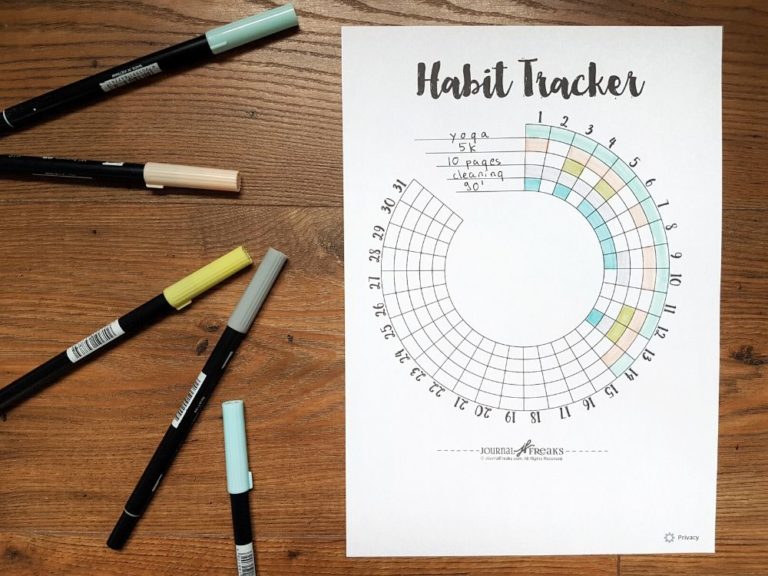 Habit Tracker
yoga
5k
10 pages
cleaning
30'
1
2
3
4
5
6
7
8
9
10
11
12
13
14
15
16
17
18
19
20
21
22
23
24
25
26
27
28
29
30
31
JOURNAL FREAKS
© JournalFreaks.com. All Rights Reserved.
Privacy